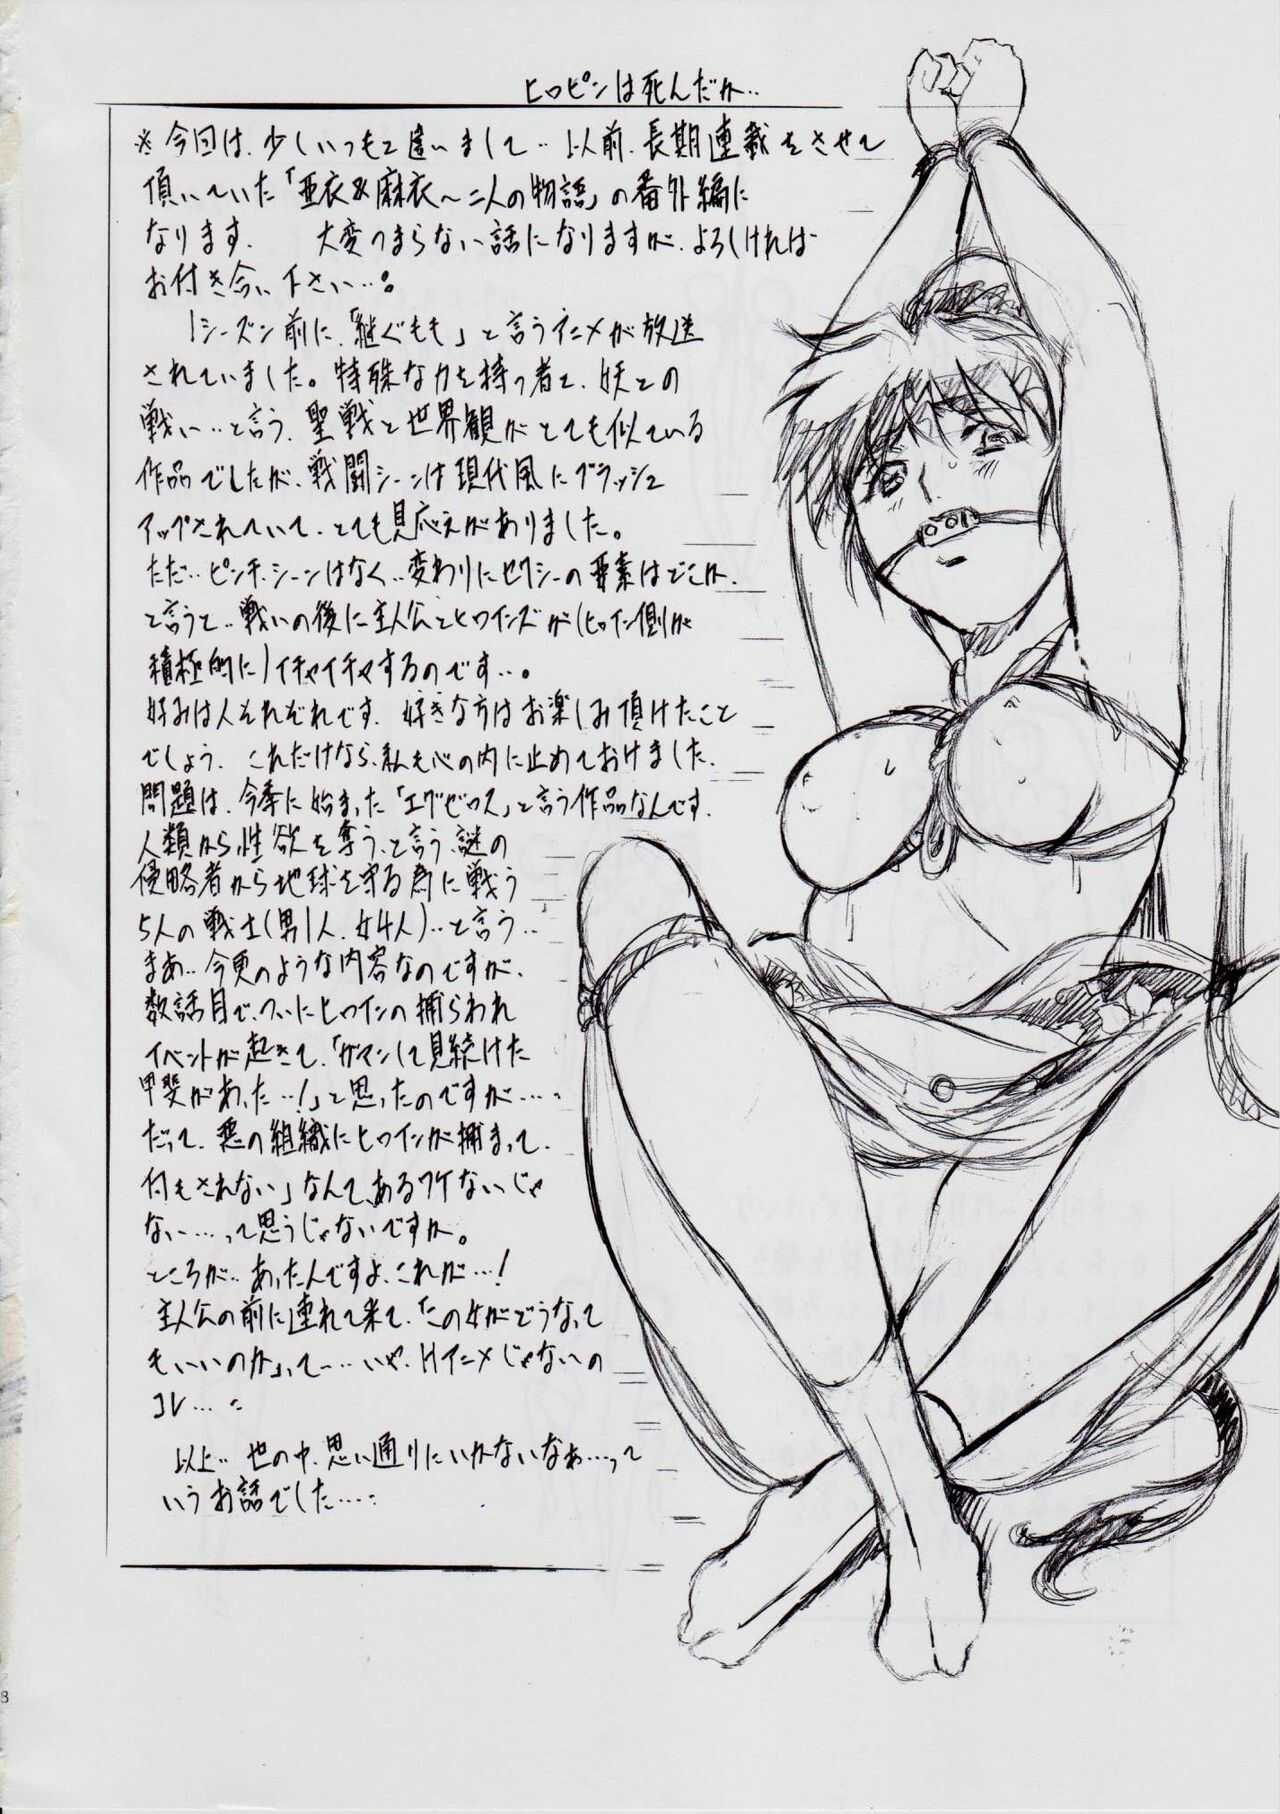 ヒロピンは死んだか‥
※今回は、少しいつもと違いまして‥以前、長期連載をさせて
頂いていた「亜衣&麻衣～二人の物語」の番外編に
なります。　大変つまらない話になりますが、よろしければ
お付き合い下さい‥。
1シーズン前に、「継ぐもも」と言うアニメが放送
されていました。特殊な力を持つ者と、妖との
戦い‥と言う、聖戦と世界観がとても似ている
作品でしたが、戦闘シーンは現代風にブラッシュ
アップされていて、とても見応えがありました。
ただ‥ピンチ・シーンはなく‥変わりにセクシーの要素はどこか、
と言うと‥戦いの後に主人公とヒロインズが(ヒロイン側が
積極的に)イチャイチャするのです…。
好みは人それぞれです。好きな方はお楽しみ頂けたこと
でしょう。これだけなら、私も心の内に止めておけました。
問題は、今季に始まった「エグゼロス」と言う作品なんです。
人類から性欲を奪う、と言う謎の
侵略者から地球を守る為に戦う
5人の戦士(男1人、女4人)‥と言う‥
まあ‥今更のような内容なのですが、
数話目で、ついにヒロインの捕らわれ
イベントが起きて、「ガマンして見続けた
甲斐があった‥!」と思ったのですが‥‥
だって、悪の組織にヒロインが捕まって、
何もされない」なんて、あるワケないじゃ
ない‥‥って思うじゃないですか。
ところが‥あったんですよ、これが…!
主人公の前に連れて来て、「この女がどうなって
もいいのか」って‥‥いや、Hアニメじゃないの
コレ‥‥
以上‥世の中、思い通りにいかないなぁ‥‥って
いうお話でした‥‥
8